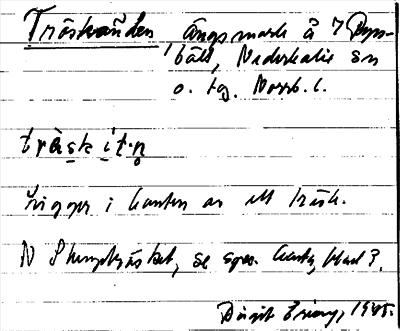 Träskändan ängsmark å 7 Byss-
bält, Nederkalix sn
o. tg. Norrb. l.
träsk i t n
Ligger i kanten av ett träsk.
N Stumpträsket, se spec. karta, blad 3.
Birgit 1945.